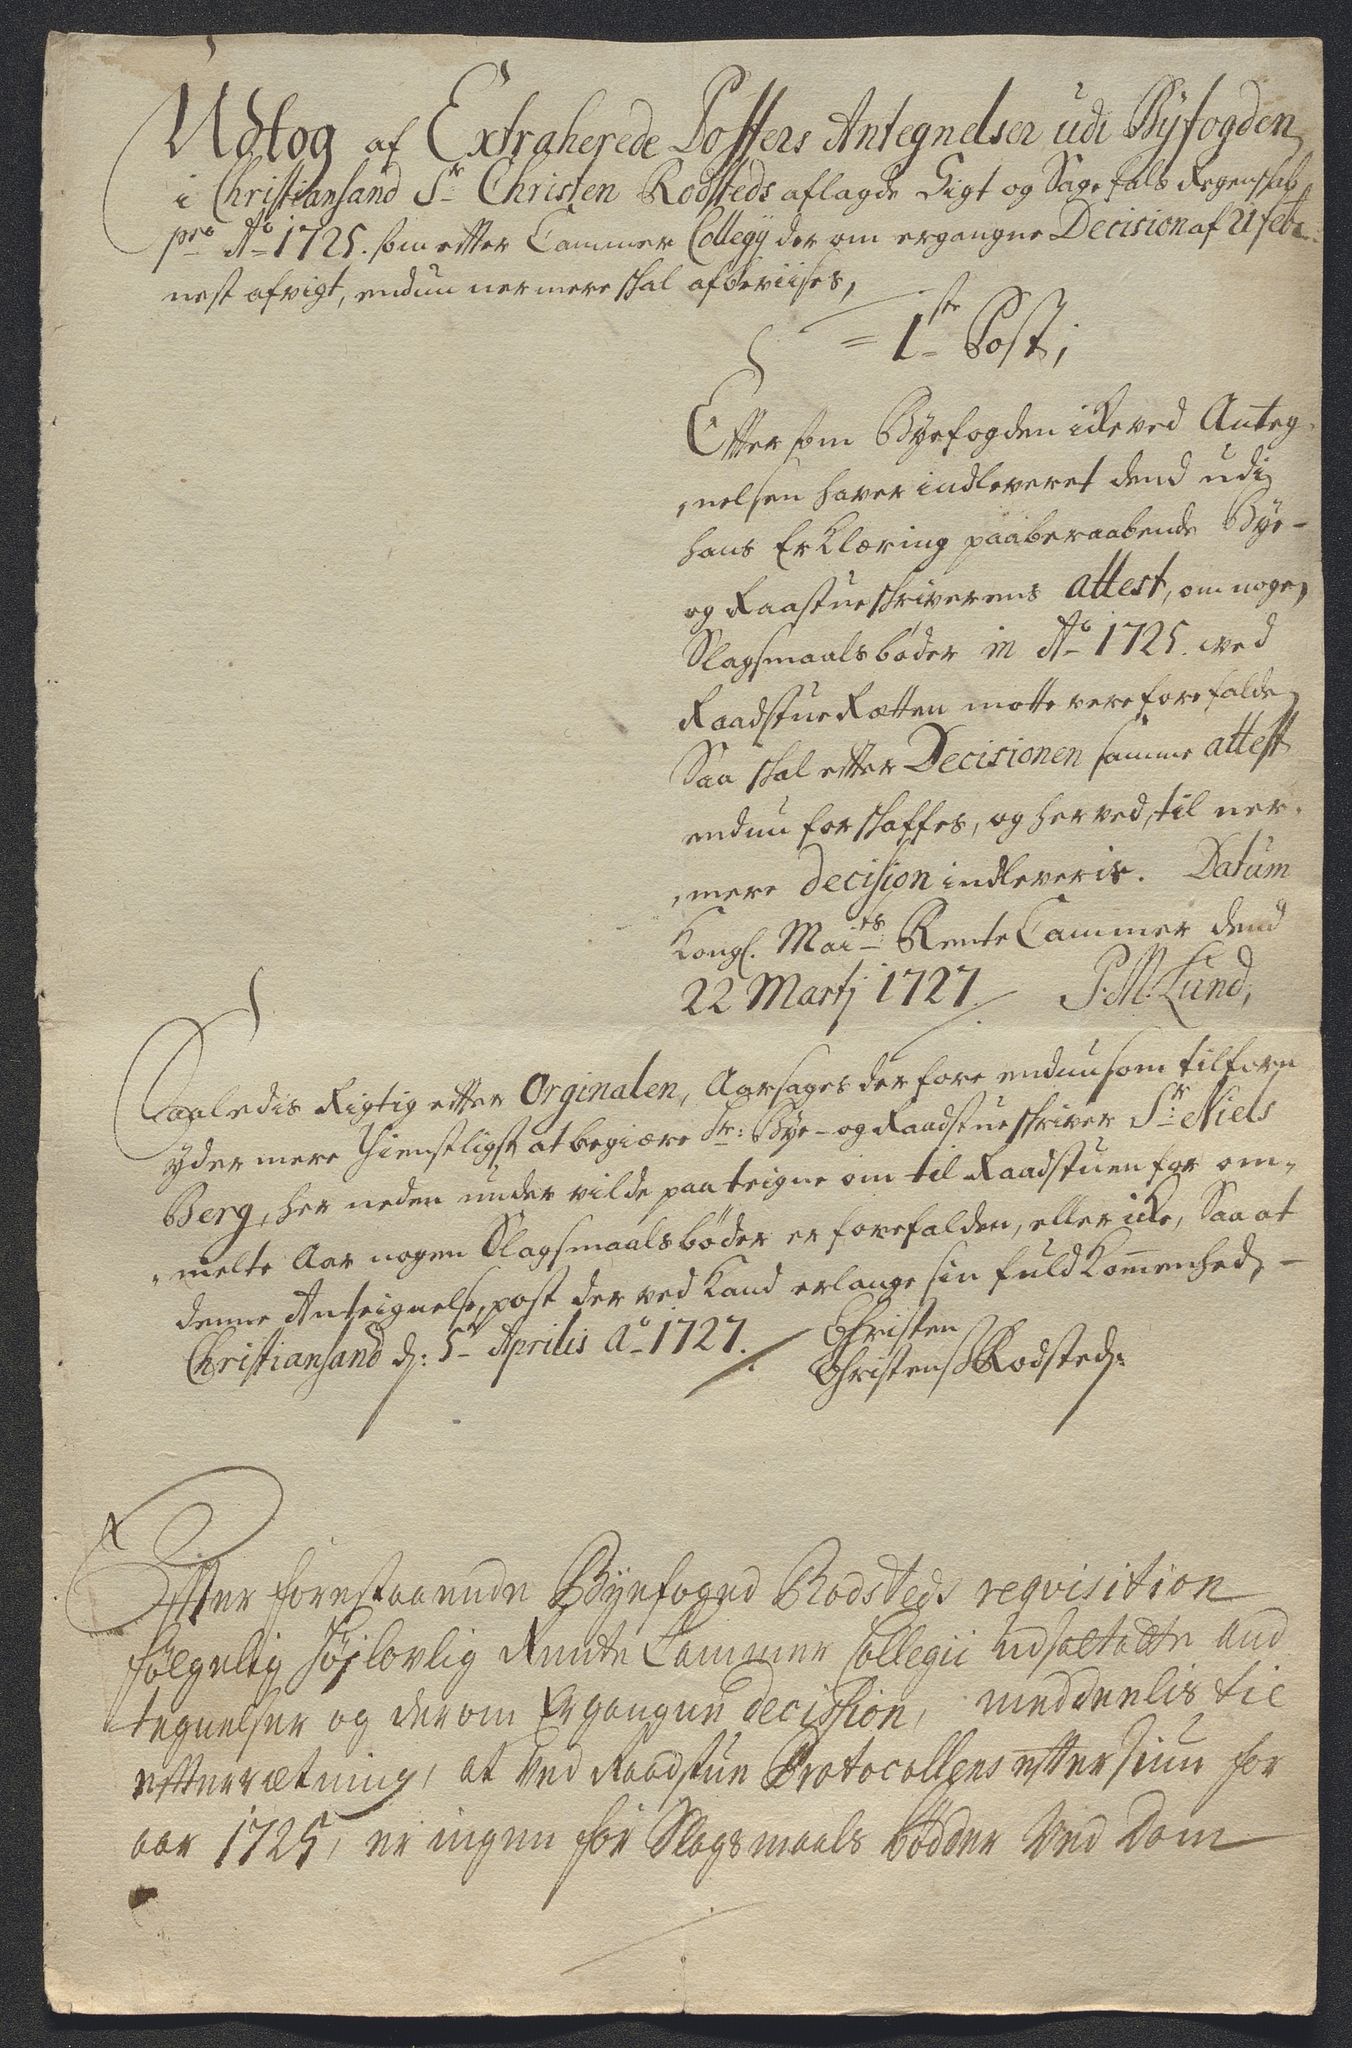 Udtog af Extraherede Posters Antegnelser udi Bÿfogden
i Christiansand Sr Christen Rodsteds aflagde Sigt og Sagefals Regenskab
pro Ao 1725. som etter Cammer Collegÿ der om ergangne Decision af 21 febr:
nest afvigt, endnu nermere skal afbeviises,
= 1ste Post;
Etter som Byefogden icke ved Anteg-
nelsen haver indleveret dend udj
hans Erklæring paaberaabende Bÿe-
og Raastueskriverens attest, om nogen
Slagsmaals bøder in Ao 1725. ved
Raadstue Rætten motte vere forefalden
Saa skal etter Decisionen samme attest
endnu forskaffes, og herved, til ner-
mere decision indleveris. Datum
Kongl. Maits Rente Cammer dend
22 Martj 1727 P. M. Lund,
Saaledis Rigtig etter Orginalen, Aarsages derfore endnu som tilforn
ydermere Tienstligst at begiære Hr: Bye- og Raadstueskriver Sr Niels
Berg, her neden under vilde paateigne om til Raadstuen for om-
melte Aar nogen Slagsmaals bøder er forefalden, eller icke, Saa at
denne Anteignelses post der ved kand erlange sin fuldkommenhed, -
Christiansand d: 5te Aprilis Ao 1727. Christen
Christens Rodsted:
Efter forestaaende Byefoged Rodsteds reqvisition
følgelig høylovlig Rente Cammer Collegii udsatte And
tegnelser og derom Ergangne decission, meddeelis til
efterrætning, at Ved Raadstue Protocollens eftersiun for
aar 1725, er ingen for Slagsmaals bødder Ved Dom